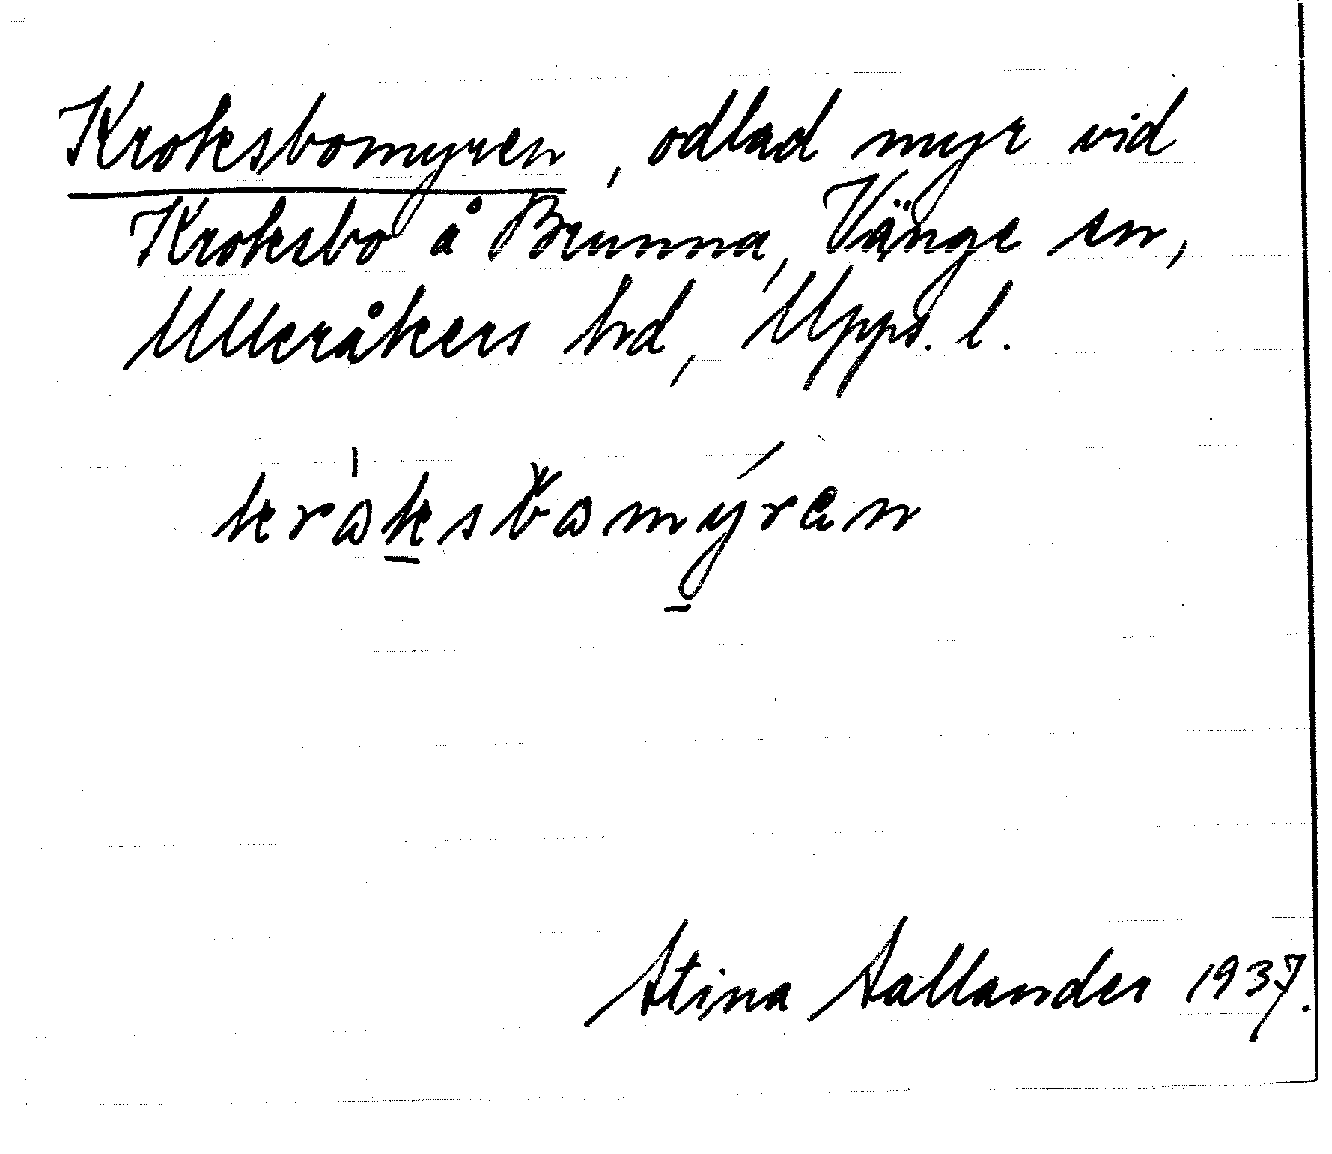 Kroksbomyren, odlad myr vid
Kroksbo å Brunna, Vänge sn,
Ulleråkers hd, Upps. l.
Stina Sallander 1937.